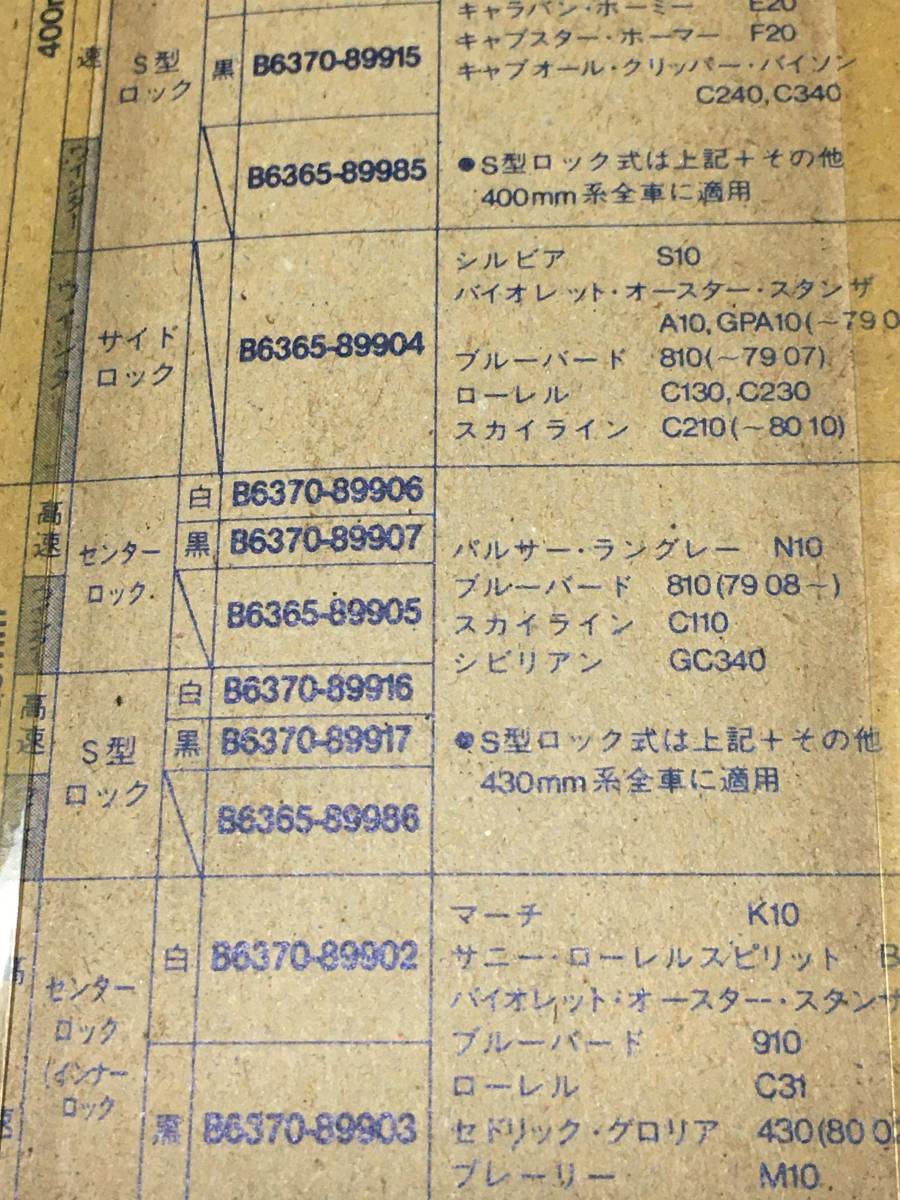 400m
キャラバン・ホーミー E20
速 S型 黒 B6370-89915 キャブスター・ホーマー F20
ロック キャブオール・クリッパー・バイソン
C240, C340
ウインター B6365-89985 ●S型ロック式は上記+その他
400mm系全車に適用
シルビア S10
バイオレット・オースター・スタンザ
A10, GPA10(~790
ウインター サイド B6365-89904 ブルーバード 810(~7907)
ロック ローレル C130, C230
スカイライン C210(~8010)
白 B6370-89906
高速 センター 黒 B6370-89907 パルサー・ラングレー N10
ロック B6365-89905 ブルーバード 810(7908~)
スカイライン C110
シビリアン GC340
白 B6370-89916
高速 S型 黒 B6370-89917 ●S型ロック式は上記+その他
ロック B6365-89986 430mm系全車に適用
マーチ K10
高 センター 白 B6370-89902 サニー・ローレルスピリット B
ロック バイオレット・オースター・スタンザ
ブルーバード 910
(インナー ローレル C31
ロック 黒 B6370-89903 セドリック・グロリア 430(8002
速 プレーリー M10